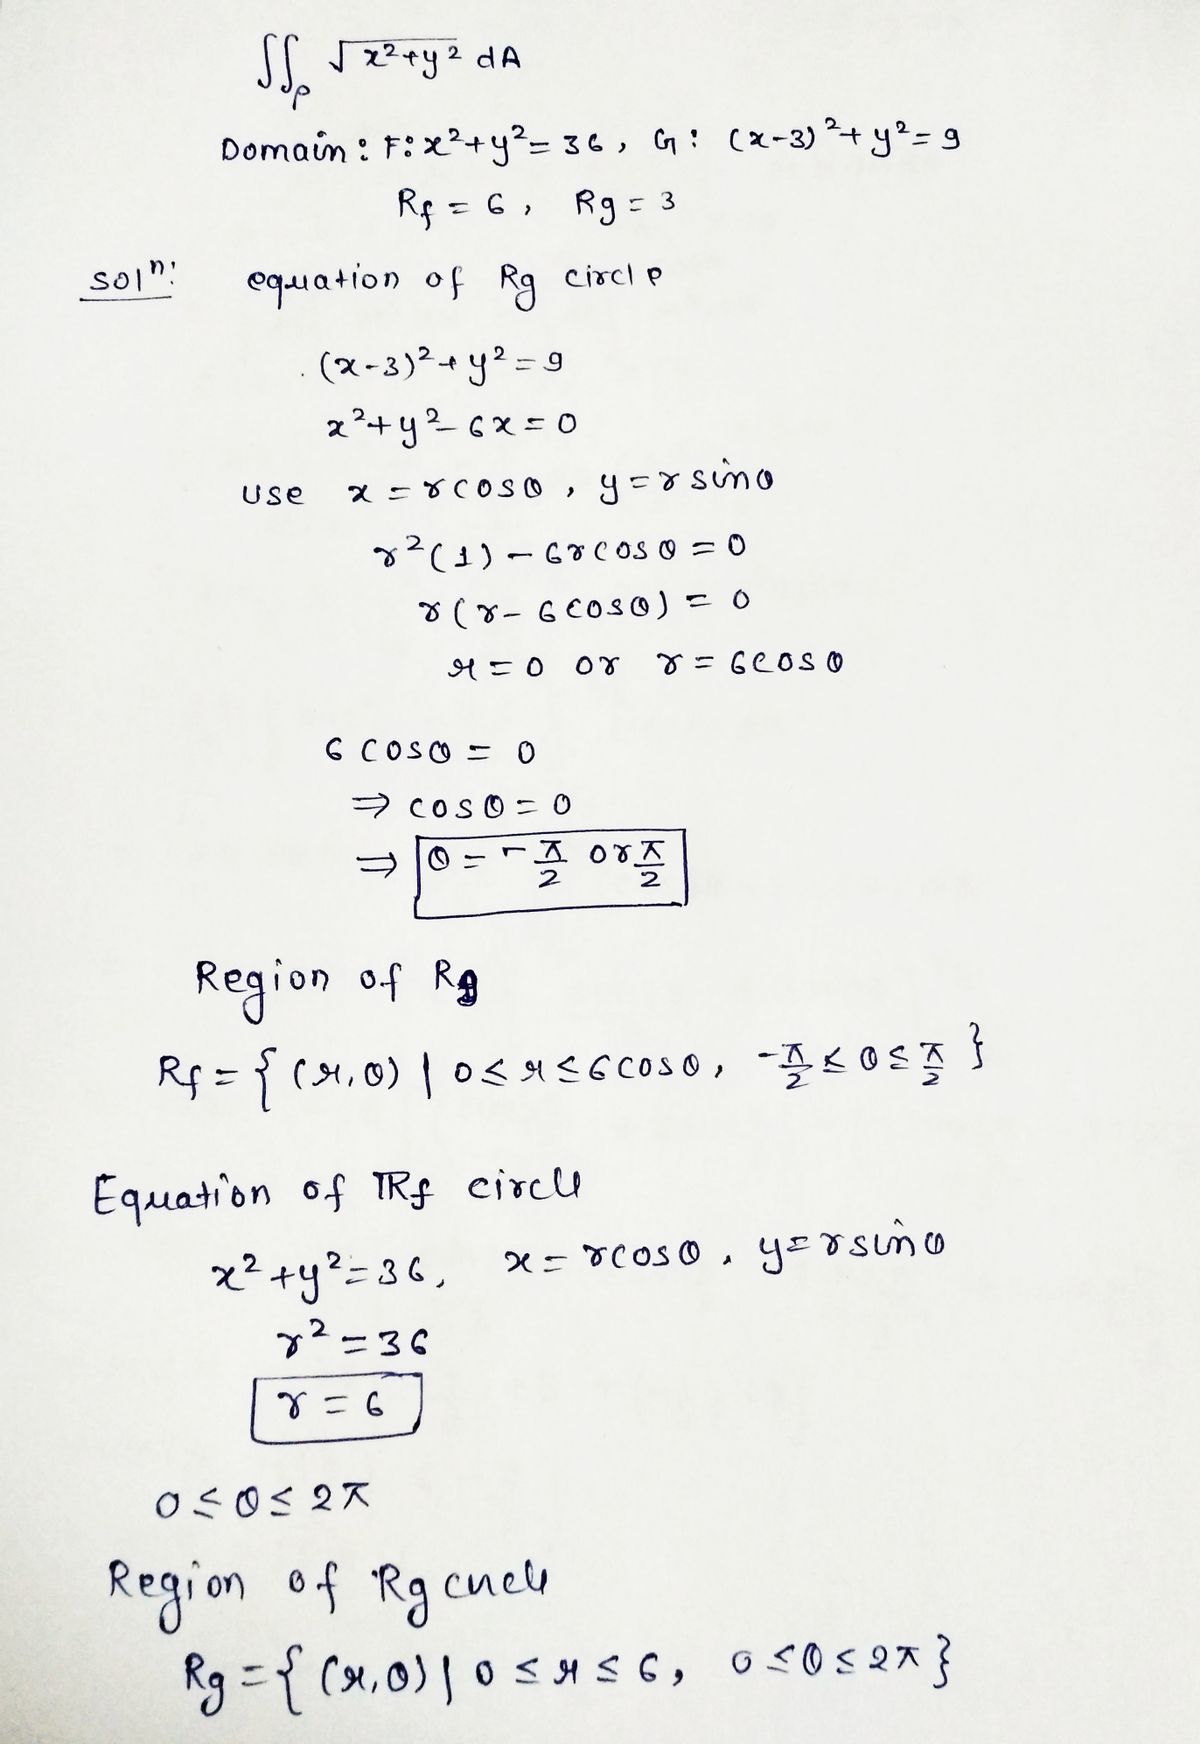 ∬_P √x²+y² dA
Domain: F: x²+y²= 36, G: (x-3)²+y²=9
Rf = 6, Rg = 3
Solⁿ: equation of Rg circle
(x-3)²+y²=9
x²+y²-6x=0
Use x = rcosθ, y=r sinθ
r²(1) - 6rcosθ = 0
r(r-6cosθ) = 0
r=0 or r=6cosθ
6 cosθ = 0
⇒ cosθ=0
⇒ θ = -π/2 or π/2
Region of Rg
Rf = { (r,θ) | 0≤r≤6cosθ, -π/2 ≤ θ ≤ π/2 }
Equation of Rf circle
x²+y²=36, x= rcosθ, y=rsinθ
r²=36
r=6
0≤θ≤2π
Region of Rg circle
Rg={ (r,θ) | 0≤r≤6, 0≤θ≤2π}